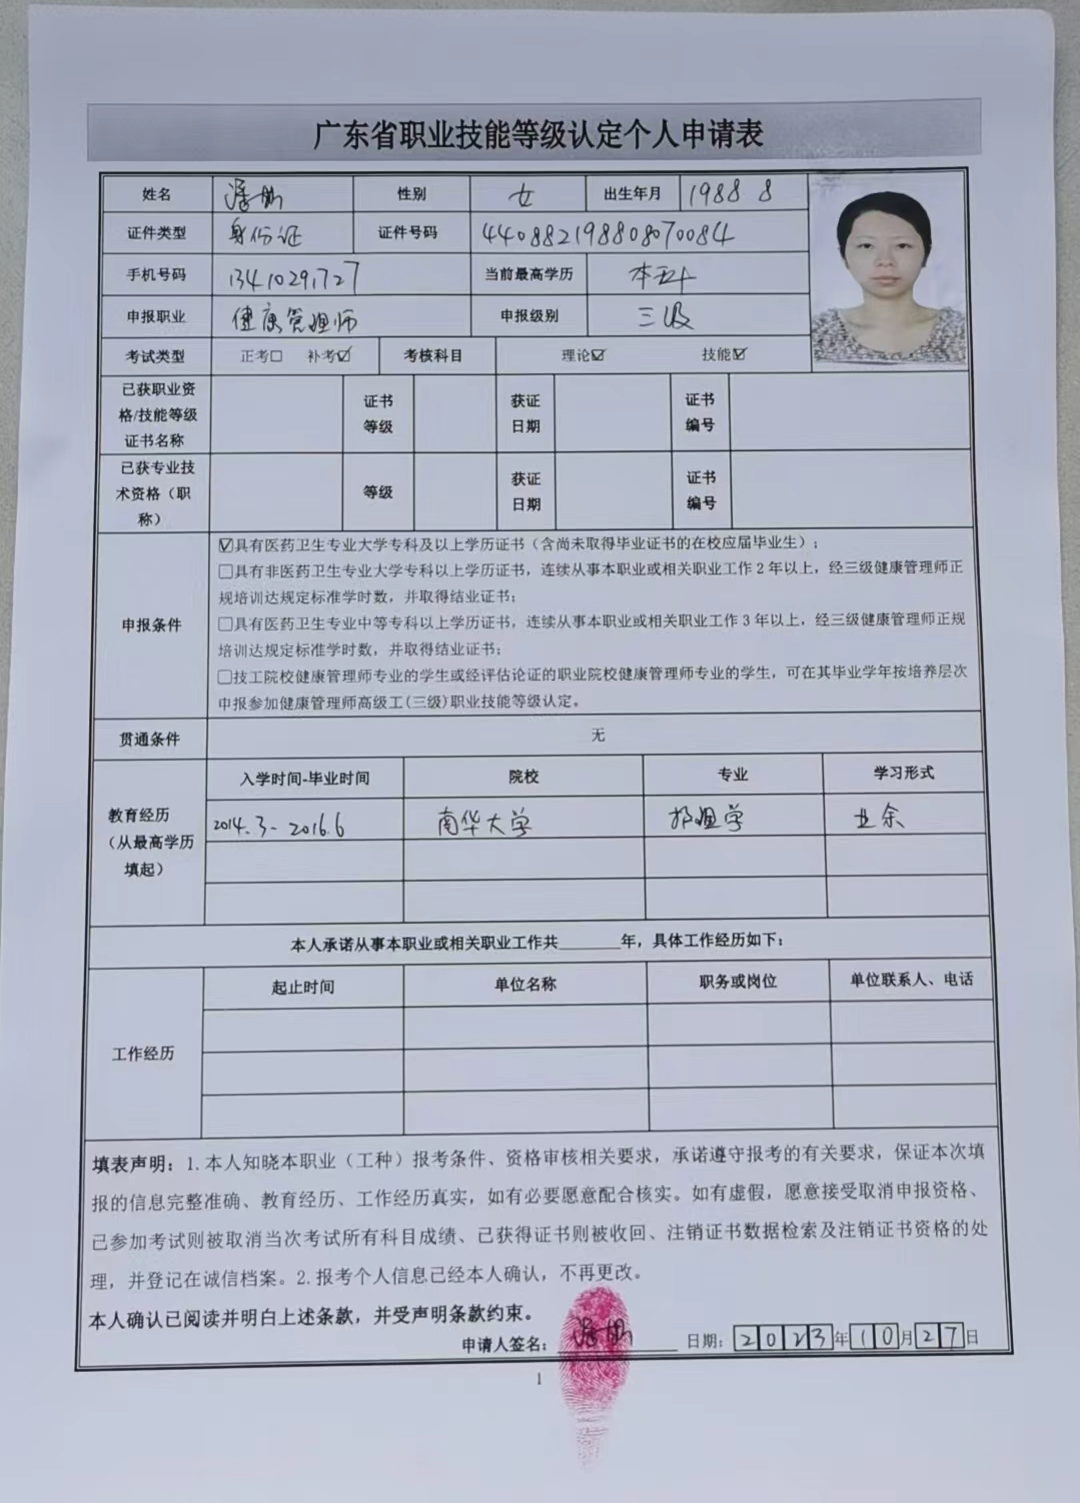 广东省职业技能等级认定个人申请表
姓名 潘 性别 女 出生年月 1988 8
证件类型 身份证 证件号码 440882198808070084
手机号码 当前最高学历 本科
申报职业 健康管理师 申报级别 三级
考试类型 正考□ 补考☑ 考核科目 理论☑ 技能☑
已获职业资格/技能等级证书名称 证书等级 获证日期 证书编号
已获专业技术资格（职称） 等级 获证日期 证书编号
申报条件
☑具有医药卫生专业大学专科及以上学历证书（含尚未取得毕业证书的在校应届毕业生）；
□具有非医药卫生专业大学专科以上学历证书，连续从事本职业或相关职业工作2年以上，经三级健康管理师正
规培训达规定标准学时数，并取得结业证书；
□具有医药卫生专业中等专科以上学历证书，连续从事本职业或相关职业工作3年以上，经三级健康管理师正规
培训达规定标准学时数，并取得结业证书；
□技工院校健康管理师专业的学生或经评估论证的职业院校健康管理师专业的学生，可在其毕业学年按培养层次
申报参加健康管理师高级工(三级)职业技能等级认定。
贯通条件 无
教育经历（从最高学历填起） 入学时间-毕业时间 院校 专业 学习形式
2014.3-2016.6 南华大学 护理学 业余
本人承诺从事本职业或相关职业工作共______年，具体工作经历如下：
工作经历 起止时间 单位名称 职务或岗位 单位联系人、电话
填表声明：1.本人知晓本职业（工种）报考条件、资格审核相关要求，承诺遵守报考的有关要求，保证本次填
报的信息完整准确、教育经历、工作经历真实，如有必要愿意配合核实。如有虚假，愿意接受取消申报资格、
已参加考试则被取消当次考试所有科目成绩、已获得证书则被收回、注销证书数据检索及注销证书资格的处
理，并登记在诚信档案。2.报考个人信息已经本人确认，不再更改。
本人确认已阅读并明白上述条款，并受声明条款约束。
申请人签名：潘 日期：2023年10月27日
1